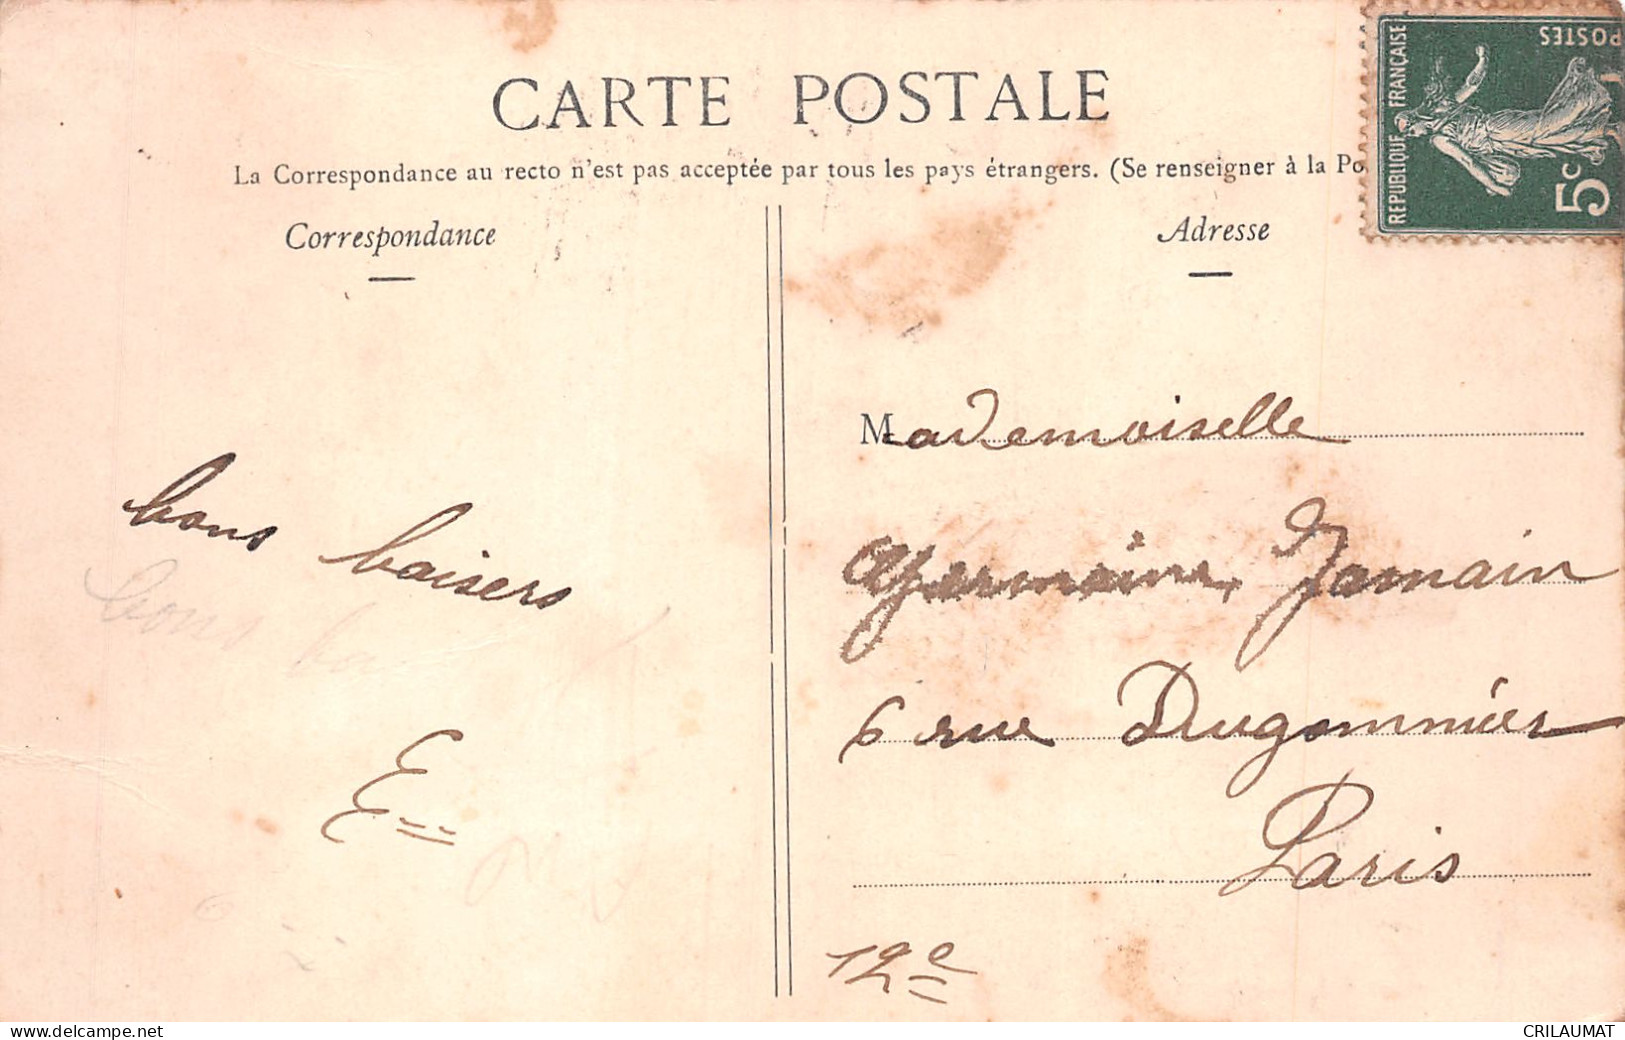 CARTE POSTALE
La Correspondance au recto n'est pas acceptée par tous les pays étrangers. (Se renseigner à la Po
Correspondance
bons baisers
bons ba
E
Adresse
Mademoiselle
Germaine Jamain
6 rue Dugommier
Paris
12e
REPUBLIQUE FRANÇAISE
POSTES
5c
www.delcampe.net
CRILAUMAT